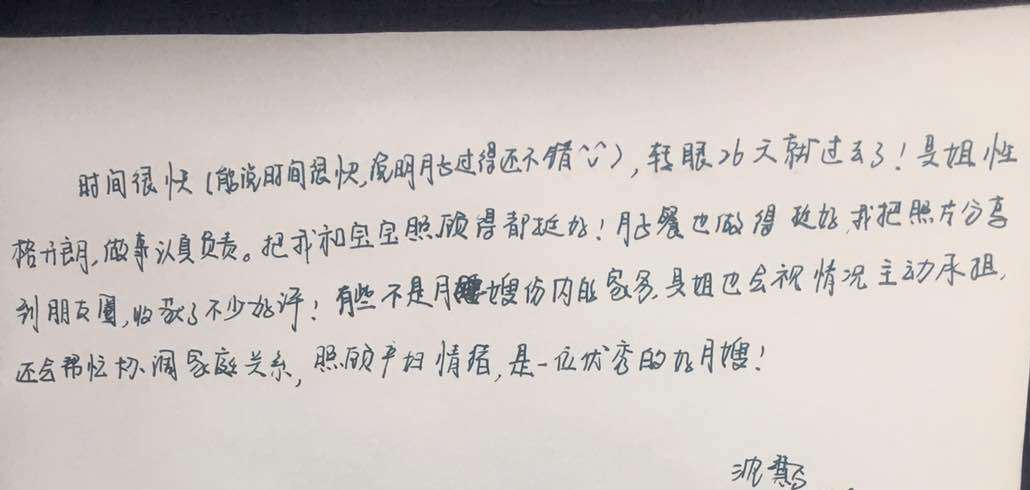 时间很快(能说时间很快,说明月子过得还不错^▽^),转眼26天就过去了!吴姐性
格开朗,做事认真负责。把我和宝宝照顾得都挺好!月子餐也做得挺好,我把照片分享
到朋友圈,收获了不少好评!有些不是月嫂份内的家务,吴姐也会视情况主动承担,
还会帮忙协调家庭关系,照顾产妇情绪,是一位优秀的好月嫂!
沈